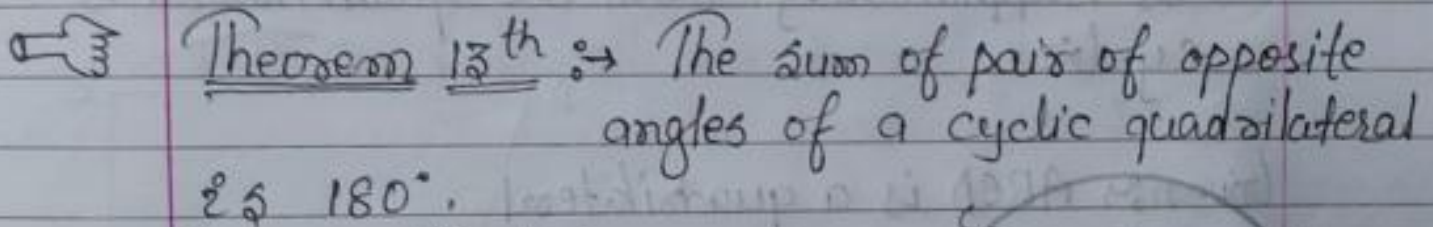 Theorem 13th :→ The sum of pair of opposite
angles of a cyclic quadrilateral
is 180°.